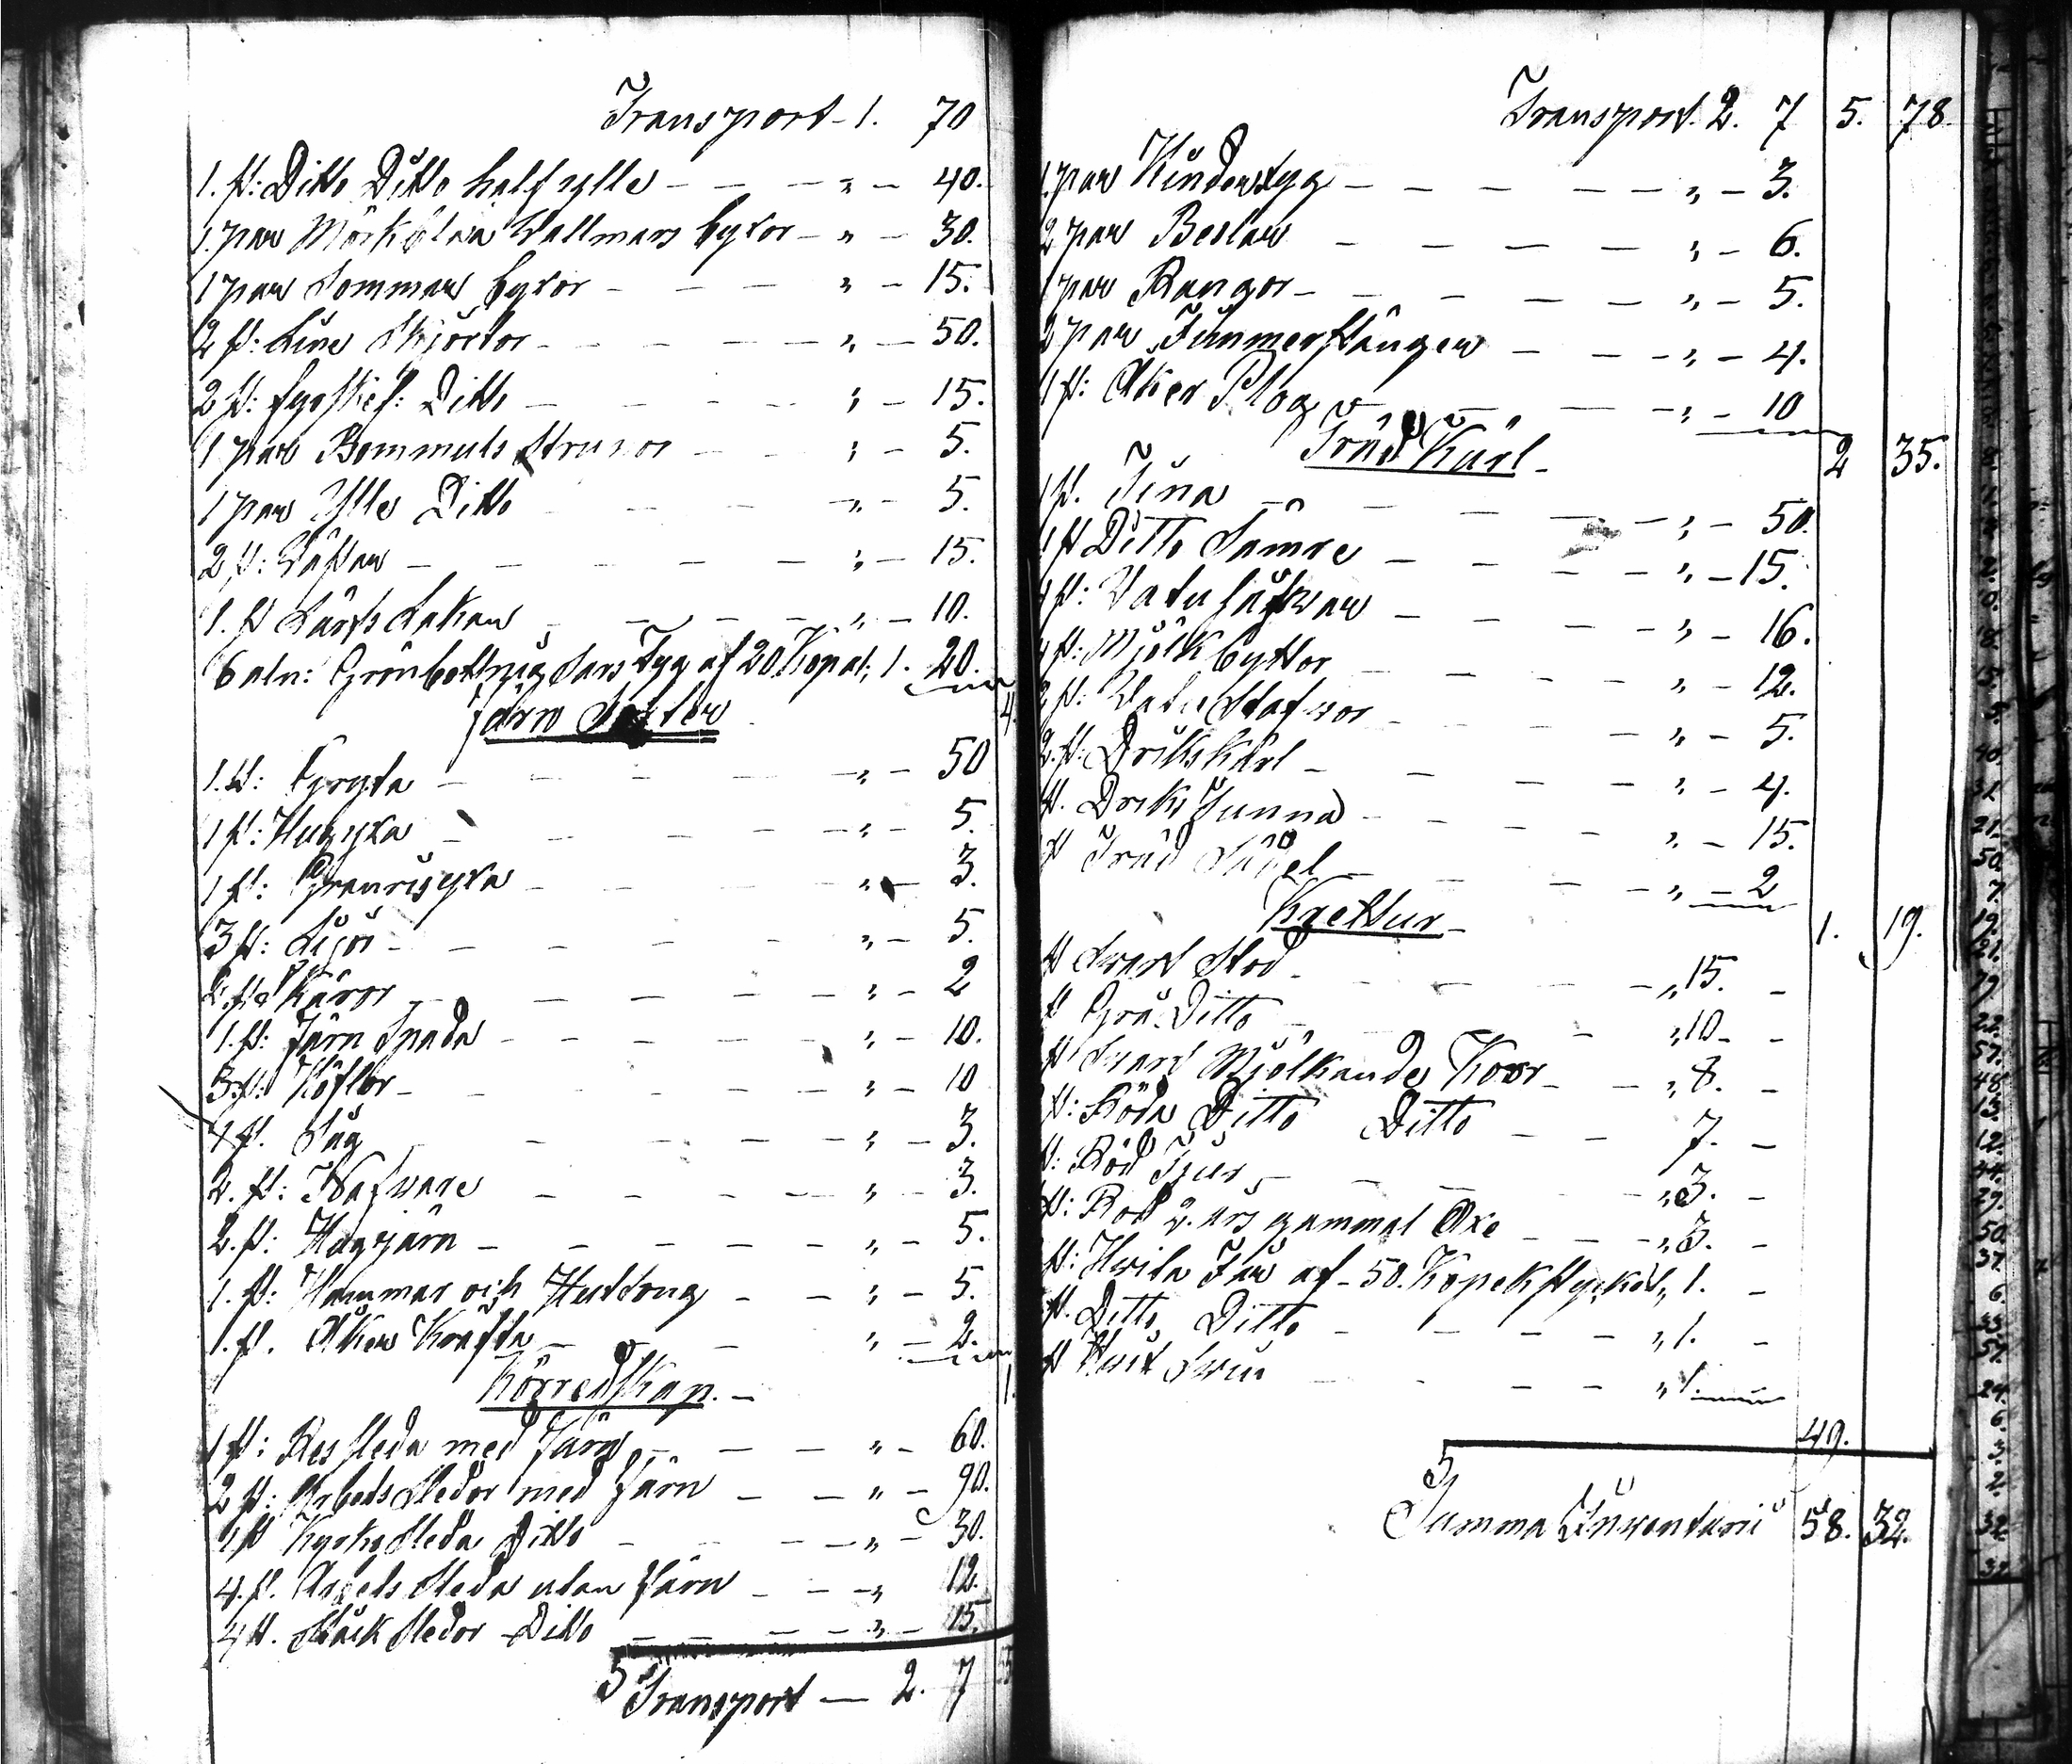 Transport - 1. 70
1. st: Ditto Ditto halfylle - - - " - 40.
1. par Mörkblåa Wallmars byxor - " - 30.
1 par Sommar byxor - - - " - 15.
2 st: Line Skjortor - - - - - " - 50.
2 st: Ditto - - - - " - 15.
1 par Bommuls Strumor - - " - 5.
1 par Ylle Ditto - - - " - 5.
2 st: Wästar - - - - - " - 15.
1. st Lärfs Lakan - - - - " - 10.
6 aln: Grönbottnig Sars Tyg af 20 Kop al: 1. 20.
Järn Saker 4.
1. st: Gryta - - - - " - 50
1 st: Hugyxa - - - - " - 5.
1 st: Granrisyxa - - - - " - 3.
3 st: Lijor - - - - - " - 5.
2. st: Skäror - - - - - " - 2
1. st: Järn Spada - - - - - " - 10.
3. st: Höflar - - - - - " - 10
4 st. Såg - - - - " - 3.
2. st: Nafware - - - - " - 3.
2. st: Hagjärn - - - - - " - 5.
1. st: Hammar och Hustong - - " - 5.
1. st. Åker Kräfta - - - " - 2.
Körredskap. - 1.
1 st: Res Sleda med Järn - - - " - 60.
2 st: Arbets Sledor med Järn - - " - 90.
1 st Kyrko Sleda Ditto - - - " - 30.
4. st. Arbets Sleda utan Järn - - " 12.
4 st. Stäck Sledor Ditto - - - - " - 15.
5 Transport - 2. 7 5
Transport 2. 7 5. 78.
1 par Hindertyg - - - - - " - 3.
2 par Beslar - - - - - " - 6.
1 par Rangor - - - - - - " - 5.
2 par Timmerstänger - - - " - 4.
1 st: Åker Plog - - - " - 10
Träd Kärl - 2 35.
1 st. Tina - - - - - " - 50.
1 st Ditto Sämre - - - - " - 15.
4 st: Vatu - - - - " - 16.
4 st: Mjölk byttor - - - - " - 12.
2 st: Vatu Stafwor - - - - " - 5.
2. st: Drikskärl - - - - " - 4.
st. Driks Tunna - - - - " - 15.
st Träd - - - - " - 2
Kreatur - 1. 19.
st Swart Stod - - - - " 15. -
st Grå Ditto - - - " 10. -
st Swart Mjölkande Koor - - " 8. -
st: Röda Ditto Ditto - - 7. -
st: Röd Tjur - - - - " 3. -
st: Röd 2. års gammal Oxe - - " 3. -
st: Hwita Får af - 50. Kopek stycket, 1. -
st. Ditto Ditto - - - - " 1. -
st Hwit Swin - - - " 1.
49.
5
Summa Inwentarii 58. 32.